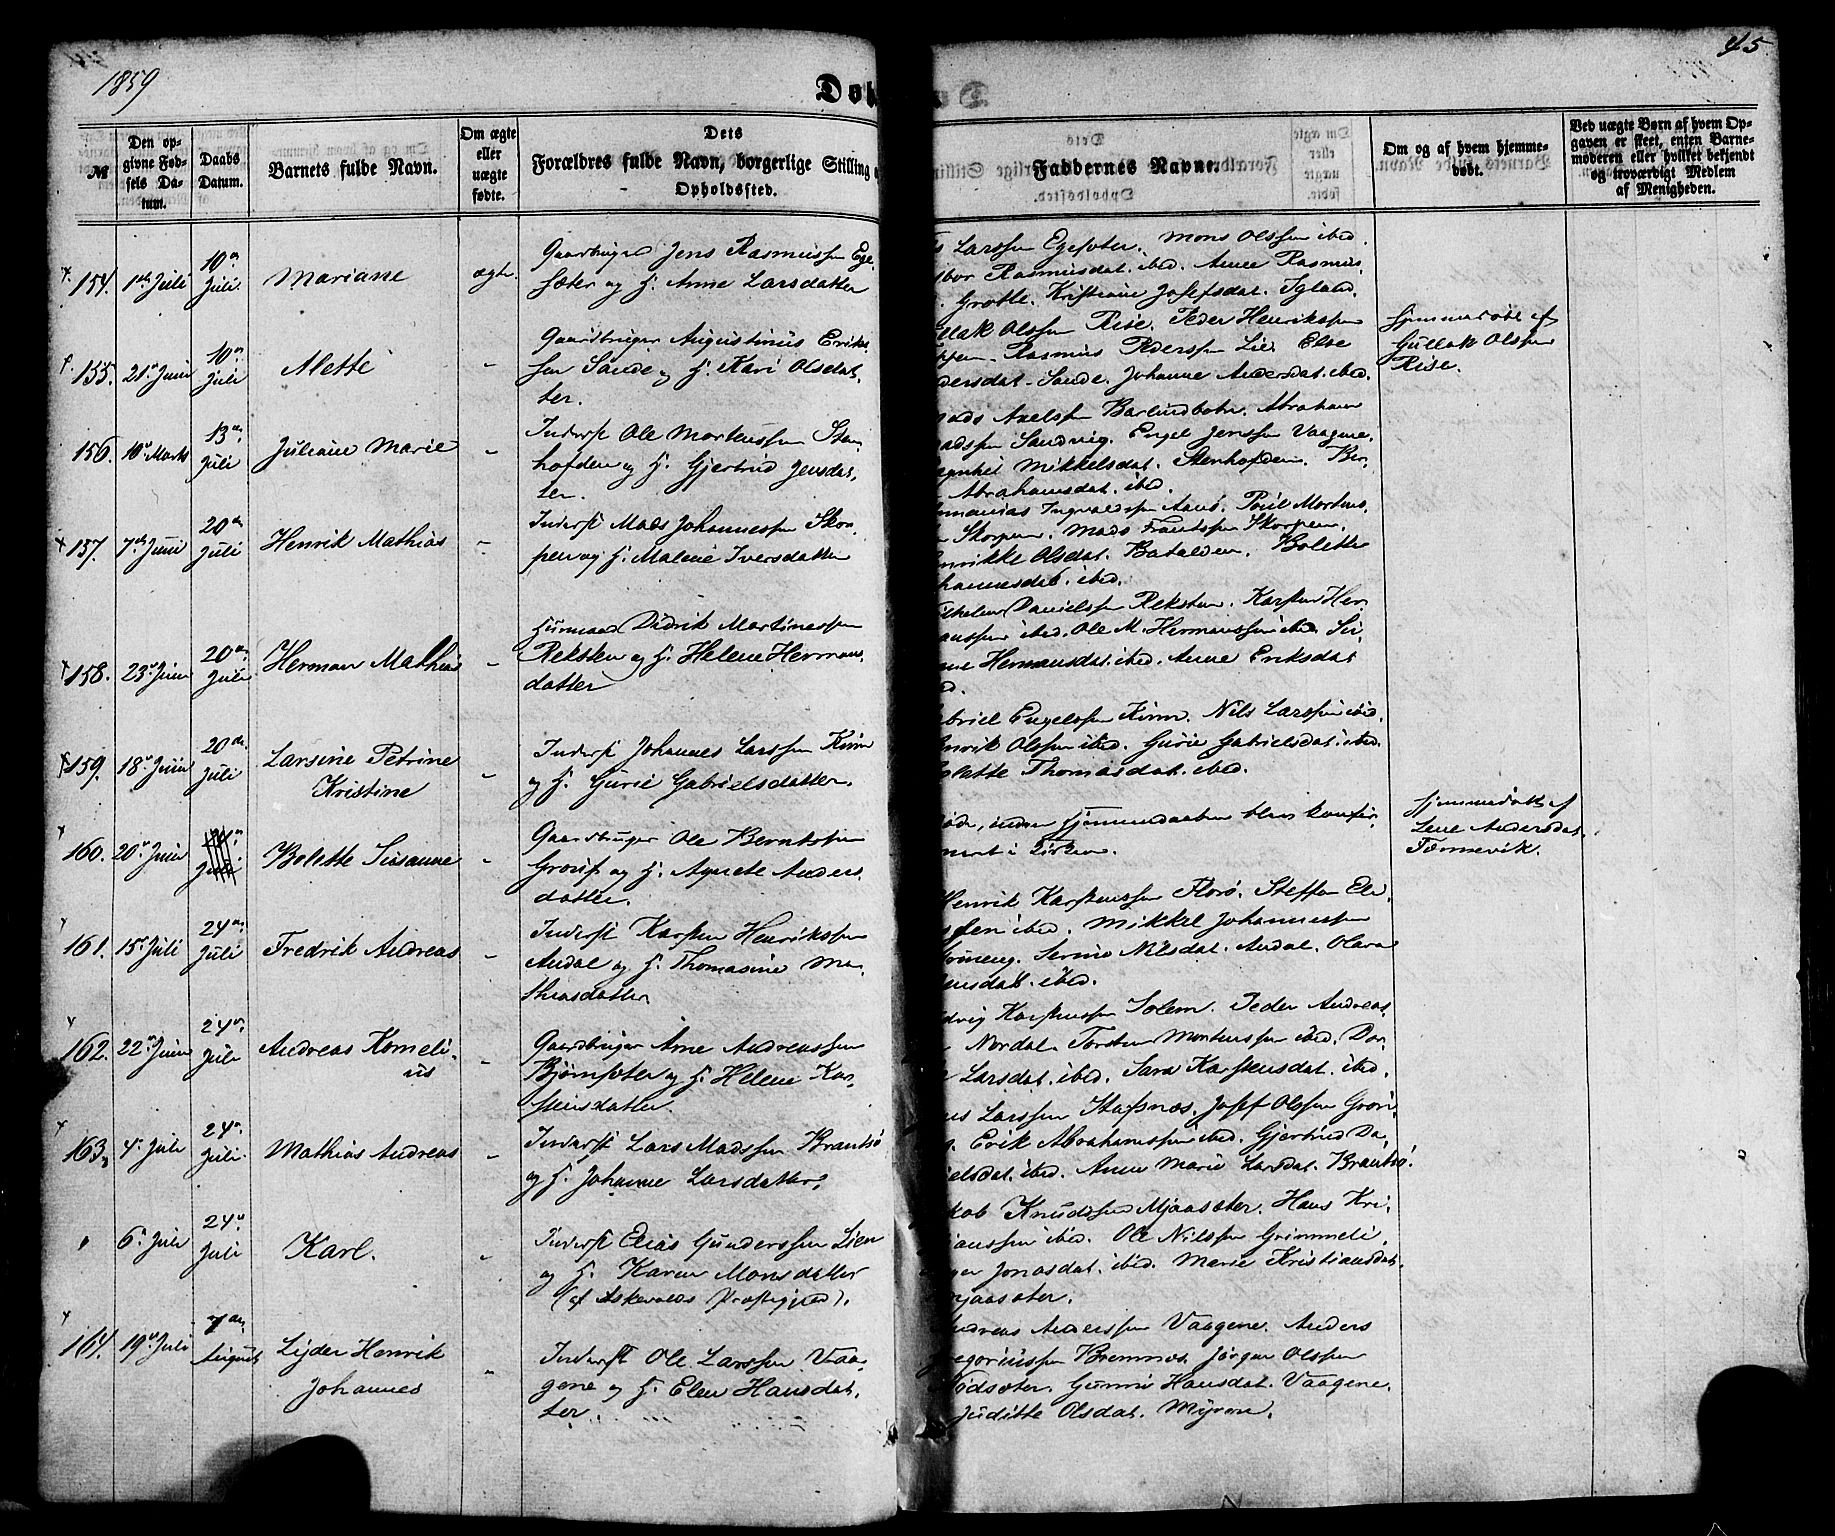 1859
45
Døb
№
Den op-
givne Fød-
sels Da-
tum.
Daabs
Datum.
Barnets fulde Navn.
Om ægte
eller
uægte
fødte.
Dets
Forældres fulde Navn, borgerlige Stilling o
Opholdssted.
Faddernes Navne.
Om og af hvem hjemme-
døbt.
Ved uægte Børn af hvem Op-
gaven er skeet, enten Barne-
moderen eller hvilket bekjendt
og troværdigt Medlem
af Menigheden.
154. 1ste Juli
10de
Juli
Mariane
ægte
Gaardbruger Jens Rasmussen Ege-
sæter og H. Anne Larsdatter
Larssen Egesæter. Mons Olssen ibed.
Rasmusdat. ibed. Anne Rasmus.
Grotle. Kristiane Josefsdat. Igland.
155. 21de Juni
10de
Juli
Mette
-
Gaardbruger Augustinus Eriks-
sen Sande og H. Kari Olsdat-
ter.
Olssen Rise. Peder Henrikssen
Rasmus Pederssen Lie. Else
dersdat. Sande. Johanne Andersdat. ibed.
Hjemmedøbt af
Gullak Olssen
Rise.
156. 10de Marts
13de
Juli
Juliane Marie
-
Inderst Ole Mortenssen Sten-
hofden og H. Gjertrud Jensdat-
ter.
Mads Axelssen Barlindbotn. Abraham
adssen Sandvig. Engel Jenssen Vaagene.
Mikkelsdat. Stenhofden. Ber-
Abrahamsdat. ibed.
157. 7de Juni
20de
Juli
Henrik Mathias
-
Inderst Mads Johannessen Skor-
pen og H. Malene Iversdatter
Ananias Ingvaldssen Aanø. Poul Mortens-
Skorpen. Mads Frantssen Skorpen.
enrikke Olsdat. Batalden. Bolette
hannesdat. ibed.
158. 23de Juni
20de
Juli
Herman Mathias
-
Huusmand Didrik Martinessen
Reksten og H. Helene Hermans-
datter
ilhelm Danielssen Reksten. Karsten Her-
manssen ibed. Ole M. Hermanssen ibed. Si-
Hermansdat. ibed. Anne Eriksdat
159. 18de Juni
20de
Juli
Larsine Petrine
Kristine
-
Inderst Johannes Larssen Kinn
og H. Gurie Gabrielsdatter.
abriel Engelssen Kinn. Nils Larssen ibid.
enrik Olssen ibed. Gurie Gabrielsdat. ibed.
olette Thomasdat. ibed.
160. 20de Juni
Juli
Bolette Susanne
-
Gaardbruger Ole Berntssen
Grov og H. Agnete Anders
datter.
døde, inden Hjemmedaaben blev konfir-
meret i Kirken.
Hjemmedøbt af
Lene Andersdat.
Tonnevik.
161. 15de Juli
24de
Juli
Fredrik Andreas
-
Inderst Karsten Henrikssen
Andal og H. Thomasine Ma-
thiasdatter
Henrik Karstenssen Florø. Steffen El-
ibed. Mikkel Johannessen
Grøneng. Serine Nilsdat. Andal. Olava
ensdat. ibed.
162. 22de Juni
24de
Juli
Andreas Korneli-
us
-
Gaardbruger Arne Andreassen
Bjørnsæter og H. Helene Kar-
stensdatter.
Karstenssen Solem. Peder Andreas.
Nordal. Torsten Mortenssen ibed. Dor-
Larsdat. ibed. Sara Karstensdat. ibed.
163. 4de Juli
24de
Juli.
Mathias Andreas
-
Inderst Lars Madssen Brantsø
og H. Johanne Larsdatter.
Larssen Stavsnæs. Josef Olssen Grov-
Erik Abrahamssen ibed. Gjertrud Da-
nielsdat. ibed. Anne Marie Larsdat. Brantsø.
6te Juli
24de
Juli
Karl.
-
Inderst Elias Gunderssen Lien
og H. Karen Monsdatter
(af Askevolds Præstegjeld).
akob Knudssen Mjaasæter. Hans Kri-
tianssen ibed. Ole Nilssen Grimmeli.
Jonasdat. ibed. Marie Kristiansdat.
Mjaasæter.
164. 19de Juli
7de
August
Lyder Henrik
Johannes
-
Inderst Ole Larssen Vaa-
gene og H. Elen Hansdat-
ter.
Andreas Anderssen Vaagene. Anders
Gregoriussen Bremnes. Jørgen Olssen
ødsæter. Gunni Hansdat. Vaagene.
Juditte Olsdat. Myren.